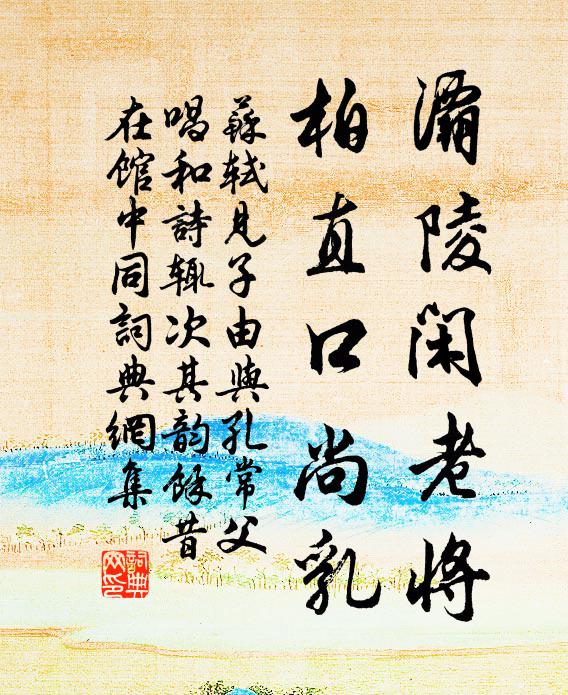 灞陵闲老將
柏直口尚乳
蘇軾見子由與孔常父
唱和詩輒次其韵餘昔
在館中同詞典網集
詞典